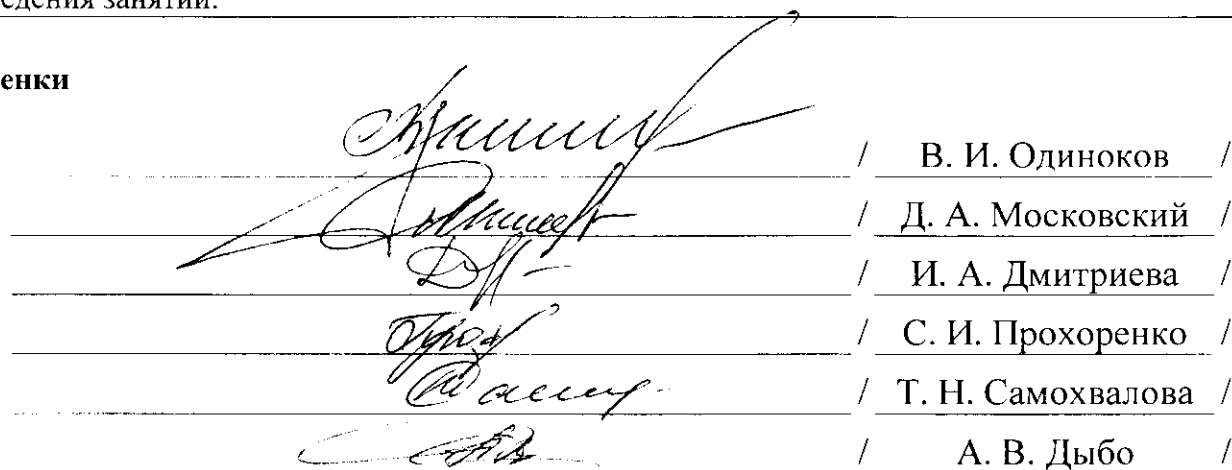 едения занятий.
енки
/ В. И. Одиноков /
/ Д. А. Московский /
/ И. А. Дмитриева /
/ С. И. Прохоренко /
/ Т. Н. Самохвалова /
/ А. В. Дыбо /